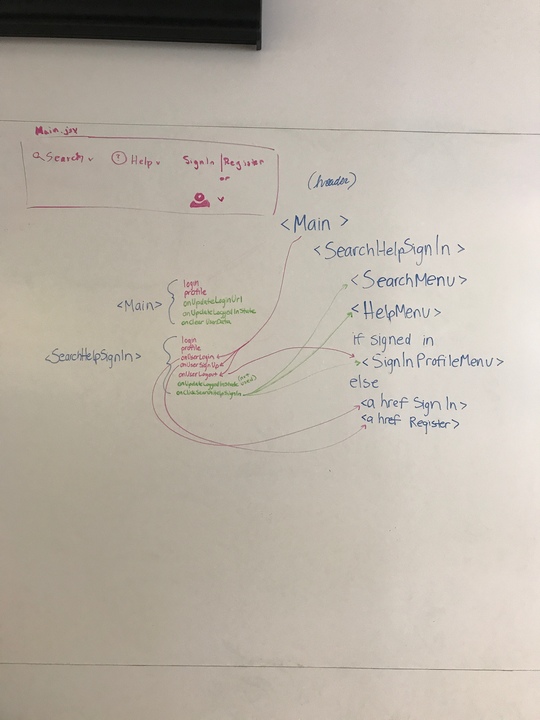 Main.jsx
Search v ? Help v SignIn | Register
or
v
(header)
<Main >
<SearchHelpSignIn >
<SearchMenu>
<HelpMenu>
if signed in
<SignInProfileMenu>
else
<a href Sign In>
<a href Register>
<Main>
login
profile
onUpdateLoginUrl
onUpdateLoggedInState
onClearUserData
<SearchHelpSignIn>
login
profile
onUserLogin
onUserSignUp
onUserLogout
onUpdateLoggedInState (not used)
onClickSearchHelpSignIn